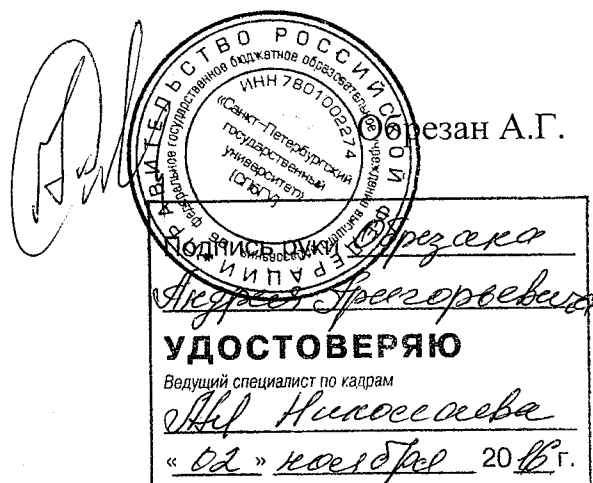 ПРАВИТЕЛЬСТВО РОССИЙСКОЙ ФЕДЕРАЦИИ
федеральное государственное бюджетное образовательное учреждение высшего
ИНН 7801002274
«Санкт-Петербургский
государственный
университет»
(СПбГУ)
Обрезан А.Г.
Подпись руки Обрезана
Андрея Григорьевича
УДОСТОВЕРЯЮ
Ведущий специалист по кадрам
Николаева
«02» ноября 2016 г.